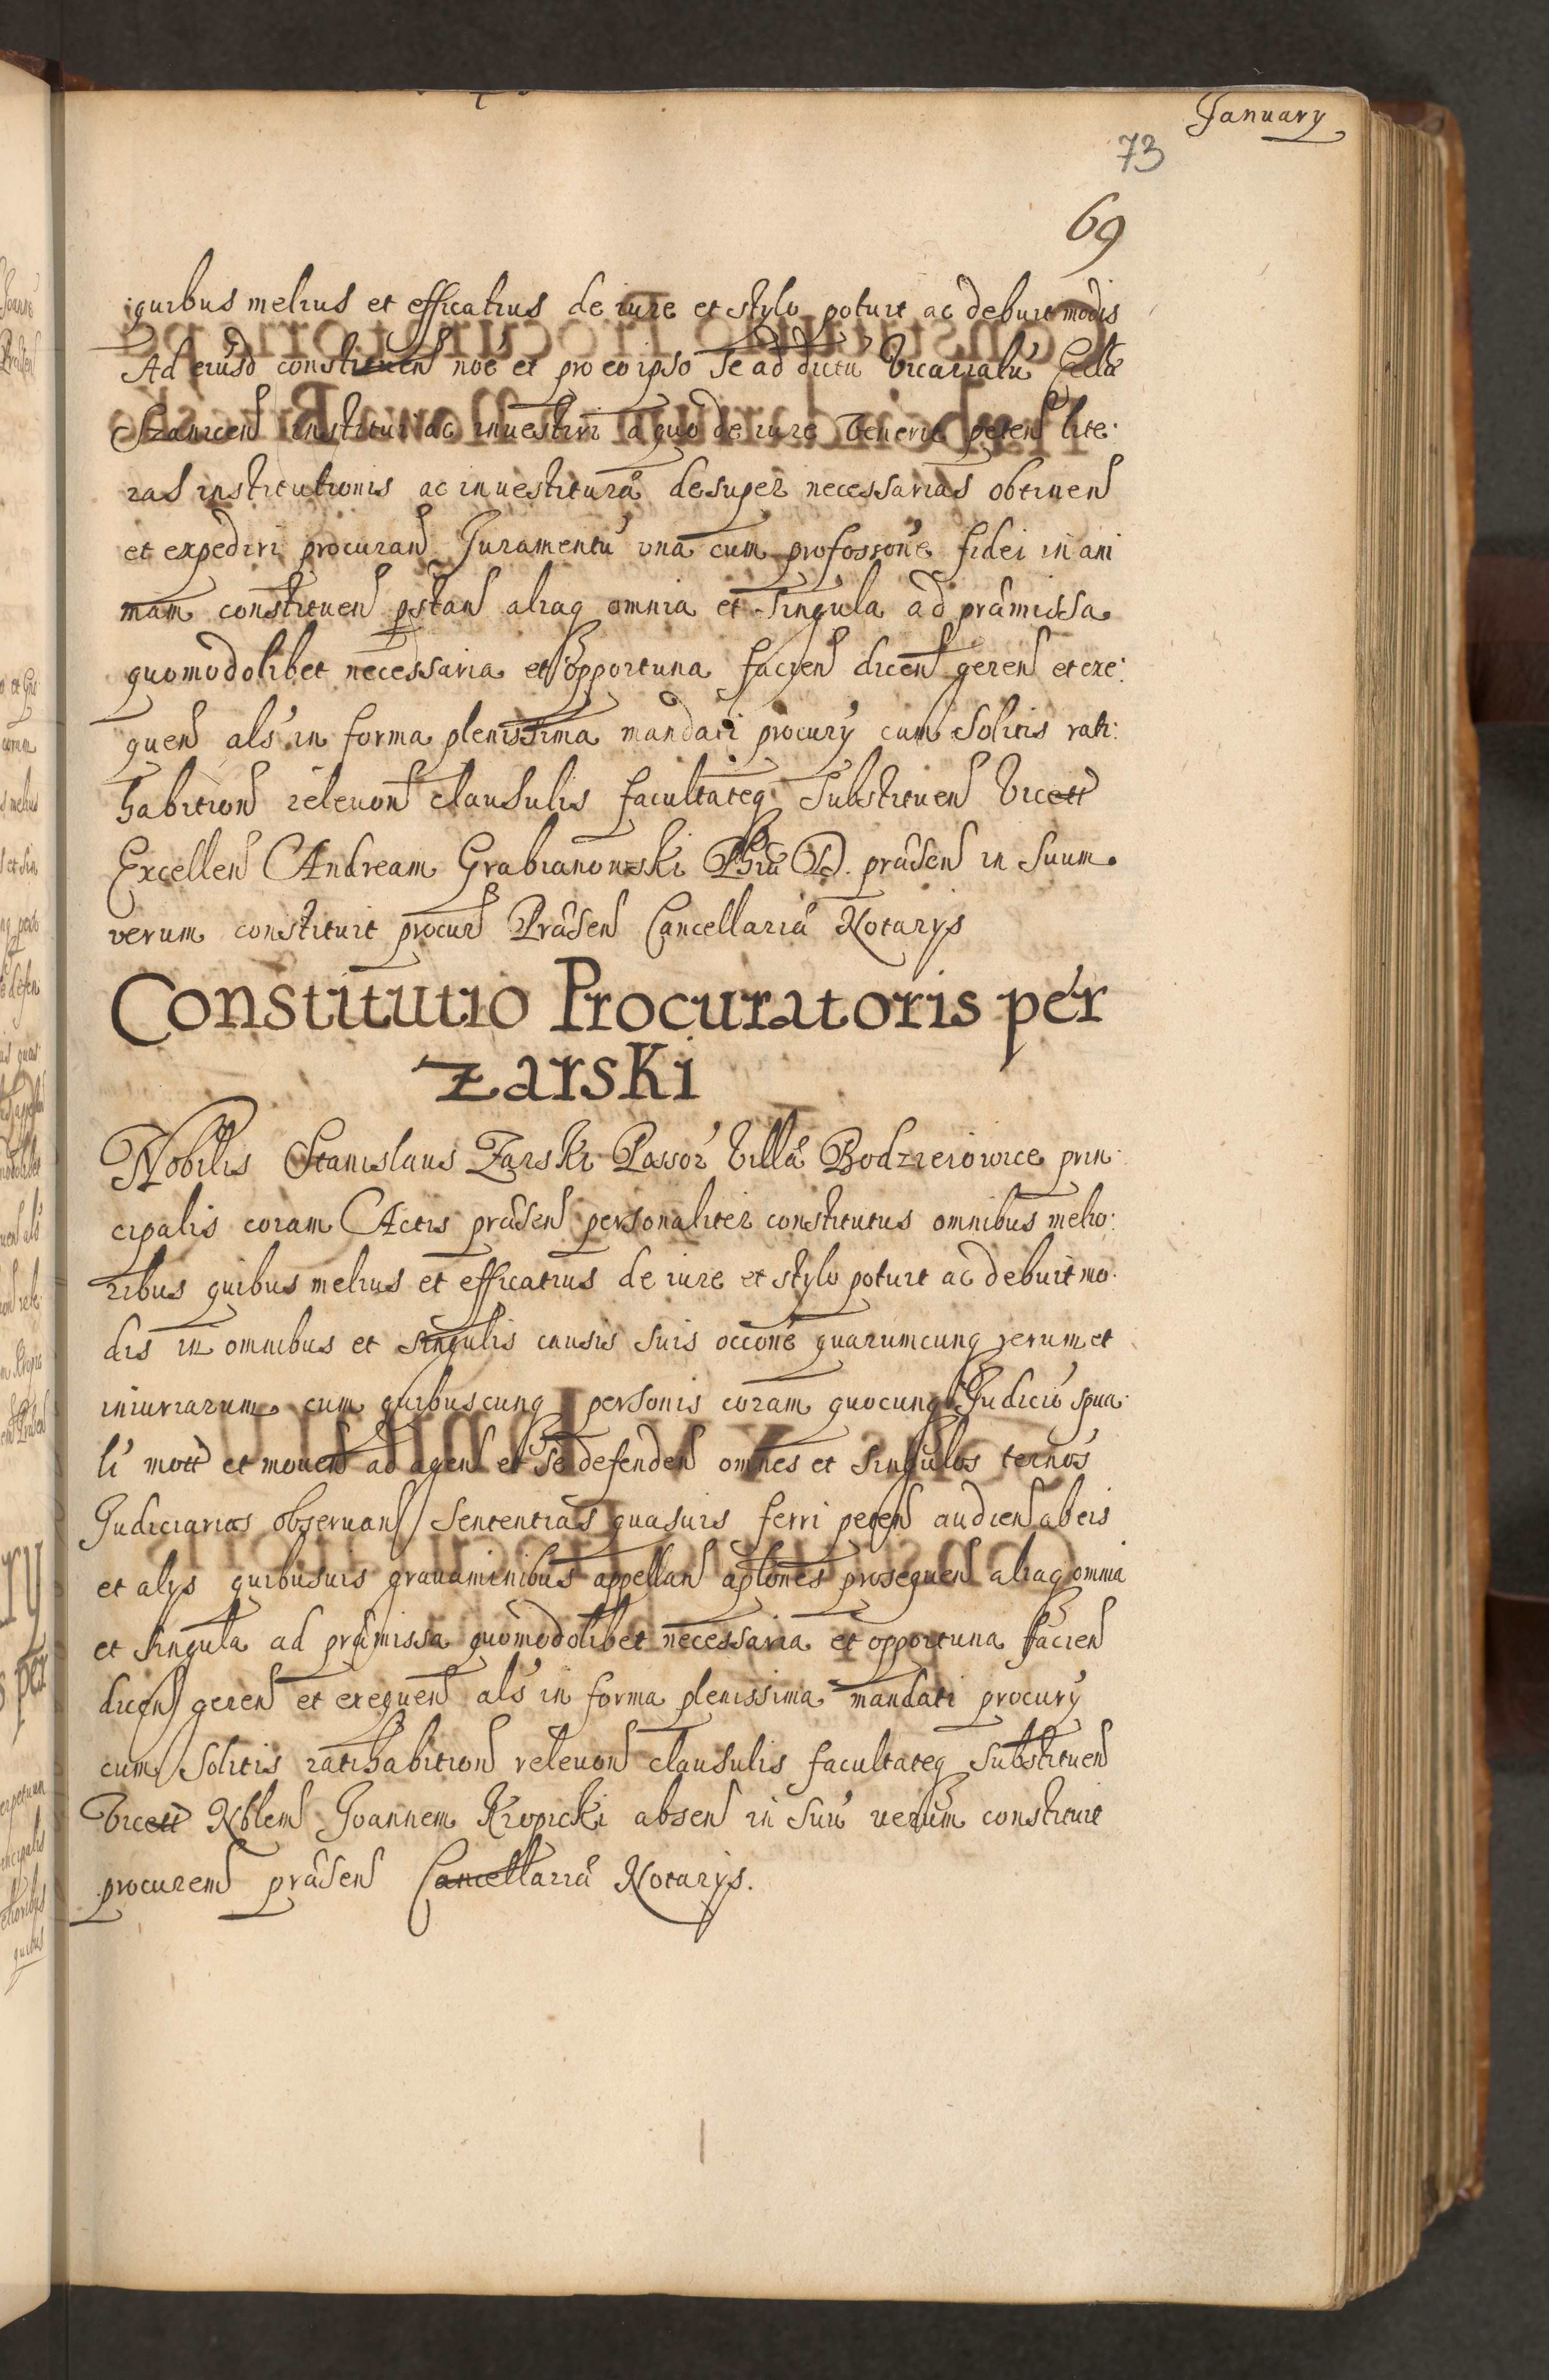 January
73
69
quibus melius et efficatius de iure et stylo potuit ac debuit modis
Ad eiusd constituen noe et pro eo ipso se ad dictu Vicariatu Eccl
Szanicen institui ac inuestiri a quo de iure Venerit peten lite:
ras institutionis ac inuestitura desuper necessarias obtinen
et expediri procuran Juramentu vna cum professone fidei in ani
mam constituen pstan aliaq omnia et singula ad præmissa
quomodolibet necessaria et opportuna facien dicen geren et exe:
quen als in forma plenissima mandati procury cum solitis rati:
habition releuon clausulis facultateq substituen Vicett
Excellen Andream Grabianowski Phiæ D. præsen in suum
verum constituit procur Præsen Cancellariæ Notarys
Constitutio Procuratoris per
Zarski
Nobilis Stanislaus Zarski Possor Villæ Bodzieiowice prin:
cipalis coram Actis præsen personaliter constitutus omnibus melio:
ribus quibus melius et efficatius de iure et stylo potuit ac debuit mo:
dis in omnibus et singulis causis suis occone quarumcunq rerum et
iniuriarum cum quibuscunq personis coram quocunq Judicio spua:
li mott et mouen ad agen et se defenden omnes et singulos ternos
Judiciarios obseruan sententias quasuis ferri peten audien ab eis
et alys quibusuis grauaminibus appellan aplones prosequen aliaq omnia
et singula ad præmissa quomodolibet necessaria et opportuna facien
dicen geren et exequen als in forma plenissima mandati procury
cum solitis ratihabition releuon clausulis facultateq substituen
Vicett Nblem Joannem Kropicki absen in suu verum constituit
procurem præsen Cancellariæ Notarys.